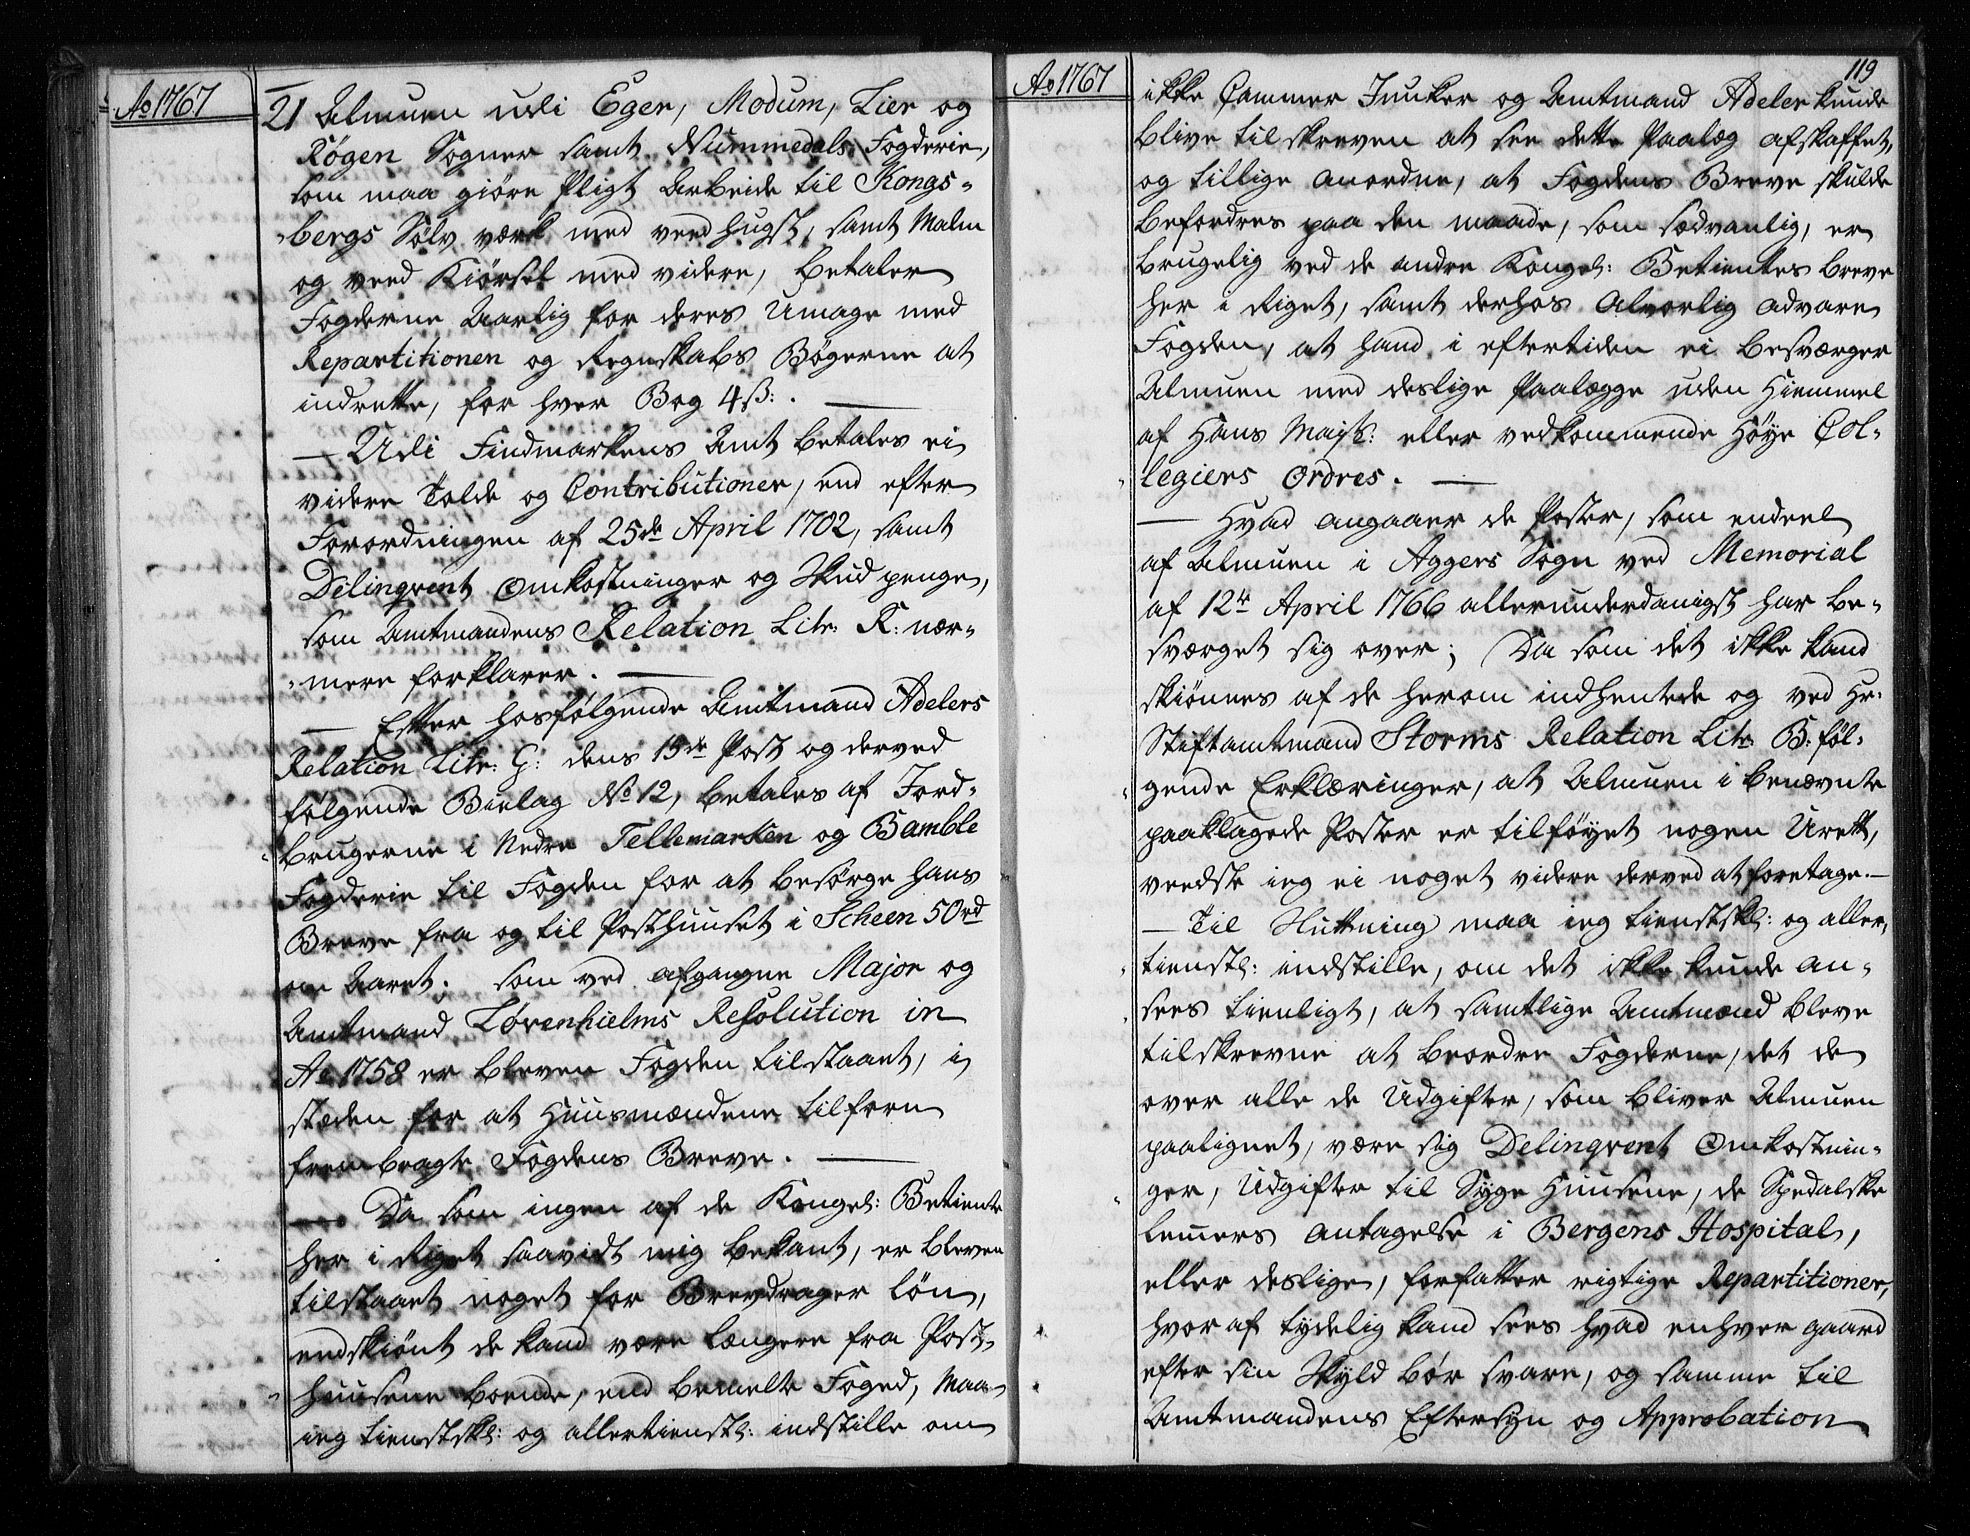 Ao 1767
21 Almuen udi Eger, Modum, Lier og
Røgen Sogner samt Nummedals Fogderie,
som maa giøre Pligt Arbeide til Kongs-
bergs Sølv værk med veed hugst, samt Malm
og veed Kiørsel med videre, betaler
Fogderne Aarlig for deres Umage med
Repartitionen og Regnskabs Bøgerne at
indrette, for hver Bog 4 ß: .
— Udi Findmarkens Amt betales ei
videre Tolde og Contributioner, end efter
Forordningen af 25de April 1702, samt
Delinqvent Omkostninger og Skudpenge,
som Amtmandens Relation Litr: K: nær-
mere forklarer. —
— Efter hosfølgende Amtmand Adelers
Relation Litr: G: dens 15de Post og derved
følgende Bielag No 12, betales af Jord-
brugerne i Nedre Tellemarken og Bamble
Fogderie til Fogden for at besørge hans
Breve fra og til Posthuuset i Scheen 50rd
om Aaret. som ved afgangne Major og
Amtmand Lövenhielms Resolution in
Ao 1758 er bleven Fogden tilstaaet, i
stæden for at Huusmændene tilforn
frembragte Fogdens Breve. —
— Da som ingen af de Kongel: Betiente
her i Riget saavidt mig bekant, er bleven
tilstaaet noget for Brevdrager Løn,
endskiönt de kand være længere fra Post-
huusene boende, end bemelte Foged, Maa
ieg tienstskl: og allertienstl: indstille om
Ao 1767
119
ikke Cammer Junker og Amtmand Adeler kunde
blive tilskreven at see dette Paalæg afskaffet,
og tillige anordne, at Fogdens Breve skulde
befordres paa den maade, som sædvanlig, er
brugelig ved de andre Kongel: Betientes breve
her i Riget, samt derhos Alvorlig advare
Fogden, at hand i eftertiden ei besværger
Almuen med deslige Paalægge uden Hiemmel
af Hans Majts: eller vedkommende Høye Col-
legiers Ordres. —
— Hvad angaaer de Poster, som endeel
af Almuen i Aggers Sogn ved Memorial
af 12te April 1766 allerunderdanigst har be-
sværget sig over; Da som det ikke kand
skiönnes af de herom indhentede og ved Hr:
Stiftamtmand Storms Relation Litr: B: föl-
gende Erklæringer, at Almuen i benævnte
paaklagede Poster er tilføyet nogen Urett,
veedste ieg ei noget videre derved at foretage. —
— Til Sluttning maa ieg tienstskl: og aller-
tienstl: indstille, om det ikke kunde an-
sees tienligt, at samtlige Amtmænd bleve
tilskrevne at beordre Fogderne, det de
over alle de Udgifter, som bliver Almuen
paalignet, være sig Delinqvent Omkostnin-
ger, Udgifter til Syge Huusene, de Spedalske
lemers antagelse i Bergens Hospital,
eller deslige, forfatter rigtige Repartitioner,
hvoraf tydelig kand sees hvad enhver gaard
efter sin Skyld bør svare, og samme til
Amtmandens Eftersyn og Approbation